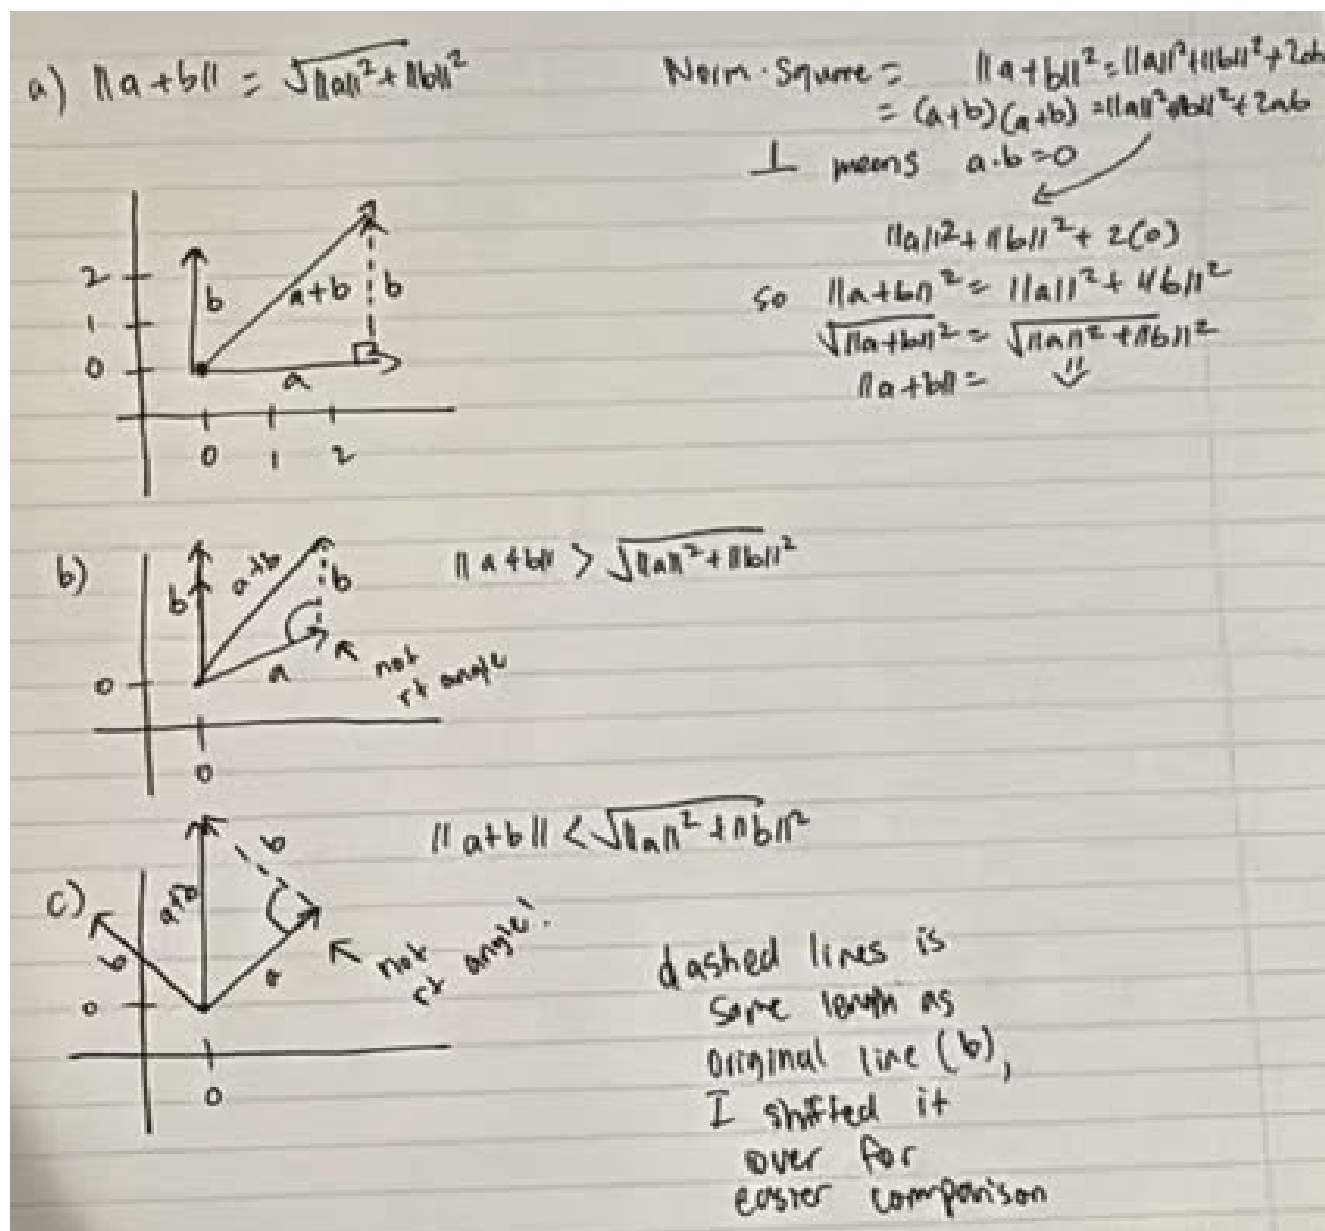 a) ||a+b|| = √||a||²+||b||²
Norm·Square = ||a+b||²=||a||²+||b||²+2ab
= (a+b)(a+b) =||a||²+||b||²+2ab
⊥ means a·b=0
||a||²+||b||²+2(0)
so ||a+b||² = ||a||²+||b||²
√||a+b||² = √||a||²+||b||²
||a+b|| =
2
1
0
b
a+b
b
a
0 1 2
b) ||a+b|| > √||a||²+||b||²
b
a+b
b
a
not
rt angle
0
0
c) ||a+b|| < √||a||²+||b||²
b
a+b
b
a
not
rt angle!
0
0
dashed lines is
same length as
original line (b),
I shifted it
over for
easier comparison